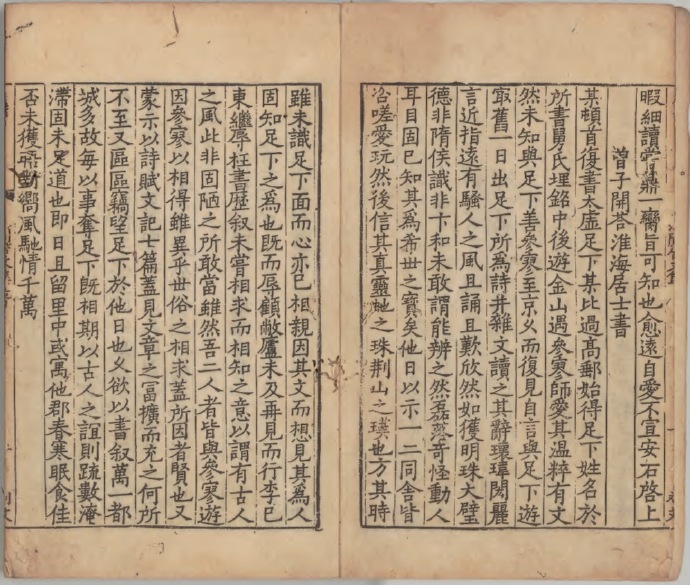 暇細讀嘗鼎一臠旨可知也愈遠自愛不宣安石啓上
曾子開答淮海居士書
某頓首復書太虛足下某比過高郵始得足下姓名於
所書舅氏埋銘中後遊金山遇參寥師愛其溫粹有文
然未知與足下善參寥至京乆而復見自言與足下遊
㝡舊一日出足下所爲詩幷雜文讀之其辭瓌瑋閎麗
言近指遠有騷人之風且誦且歎欣然如獲明珠大璧
德非隋侯識非卞和未敢謂能辨之然磊落奇怪動人
耳目固已知其爲希世之寶矣他日以示一二同舎皆
咨嗟愛玩然後信其真靈虵之珠荆山之璞也方其時
雖未識足下面而心亦已相親因其文而想見其爲人
固知足下之爲也旣而辱顧敝廬未及再見而行李已
東繼辱枉書歷叙未嘗相求而相知之意以謂有古人
之風此非固陋之所敢當雖然吾二人者皆與參寥遊
因參寥以相得雖異乎世俗之相求蓋所因者賢也又
蒙示以詩賦文記七篇蓋見文章之冨擴而充之何所
不至又區區竊望足下於他日也乆欲以書叙萬一都
城多故每以事奪足下旣相期以古人之誼則疏數淹
滯固未足道也即日且留里中或寓他郡春寒眠食佳
否未獲䛠嚮風馳情千萬